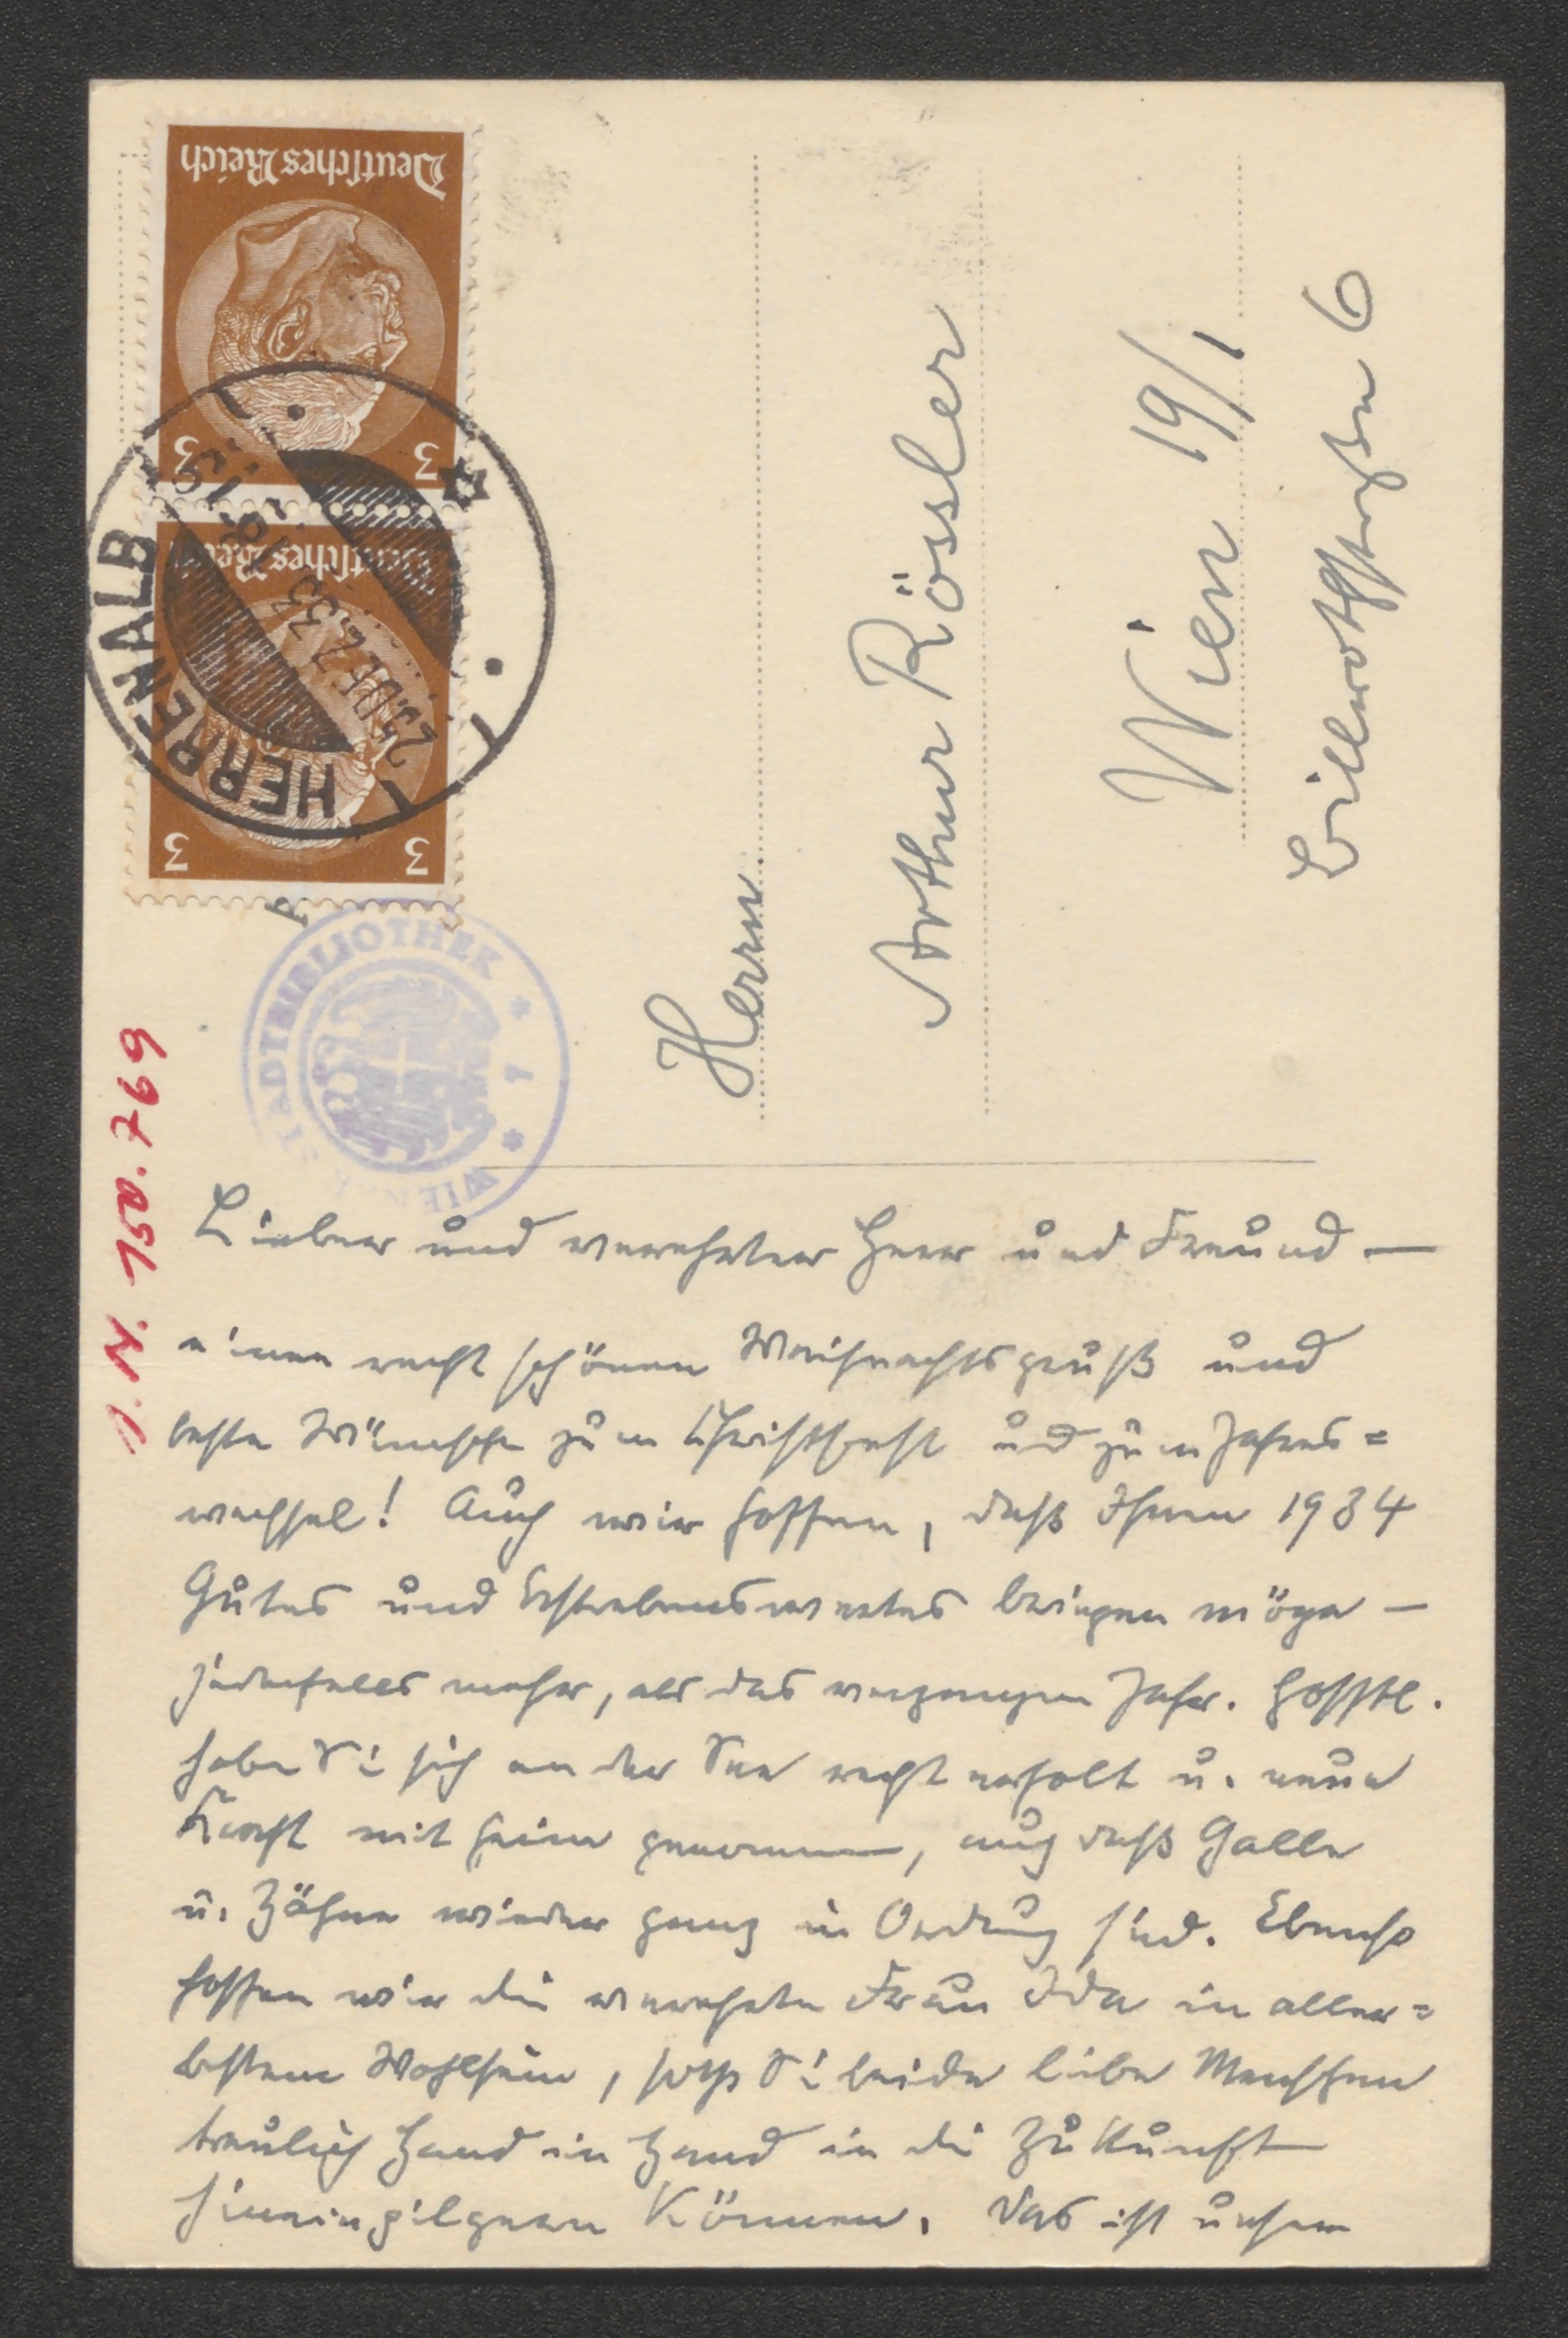 Deutsches Reich
3 3
Deutsches Reich
3 3
HERRENALB
23.DEZ.33
WIENER STADTBIBLIOTHEK
I. N. 150.769
Herrn
Arthur Rössler
Wien 19/1
Billrothstraße 6
Lieber und verehrter Herr und Freund —
einen recht schönen Weihnachtsgruß und
beste Wünsche zum Christfest und zum Jahres=
wechsel! Auch wir hoffen, daß Ihnen 1934
Gutes und Erstrebenswertes bringen möge —
jedenfalls mehr, als das vergangene Jahr. Hofftl.
haben Sie sich an der See recht erholt u. neue
Kraft mit heim genommen, auch daß Galle
u. Zähne wieder ganz in Ordnung sind. Ebenso
hoffen wir die verehrte Frau Ida in aller=
bestem Wohlsein, sodaß Sie beide liebe Menschen
traulich Hand in Hand in die Zukunft
hineinpilgern können. Das ist unser